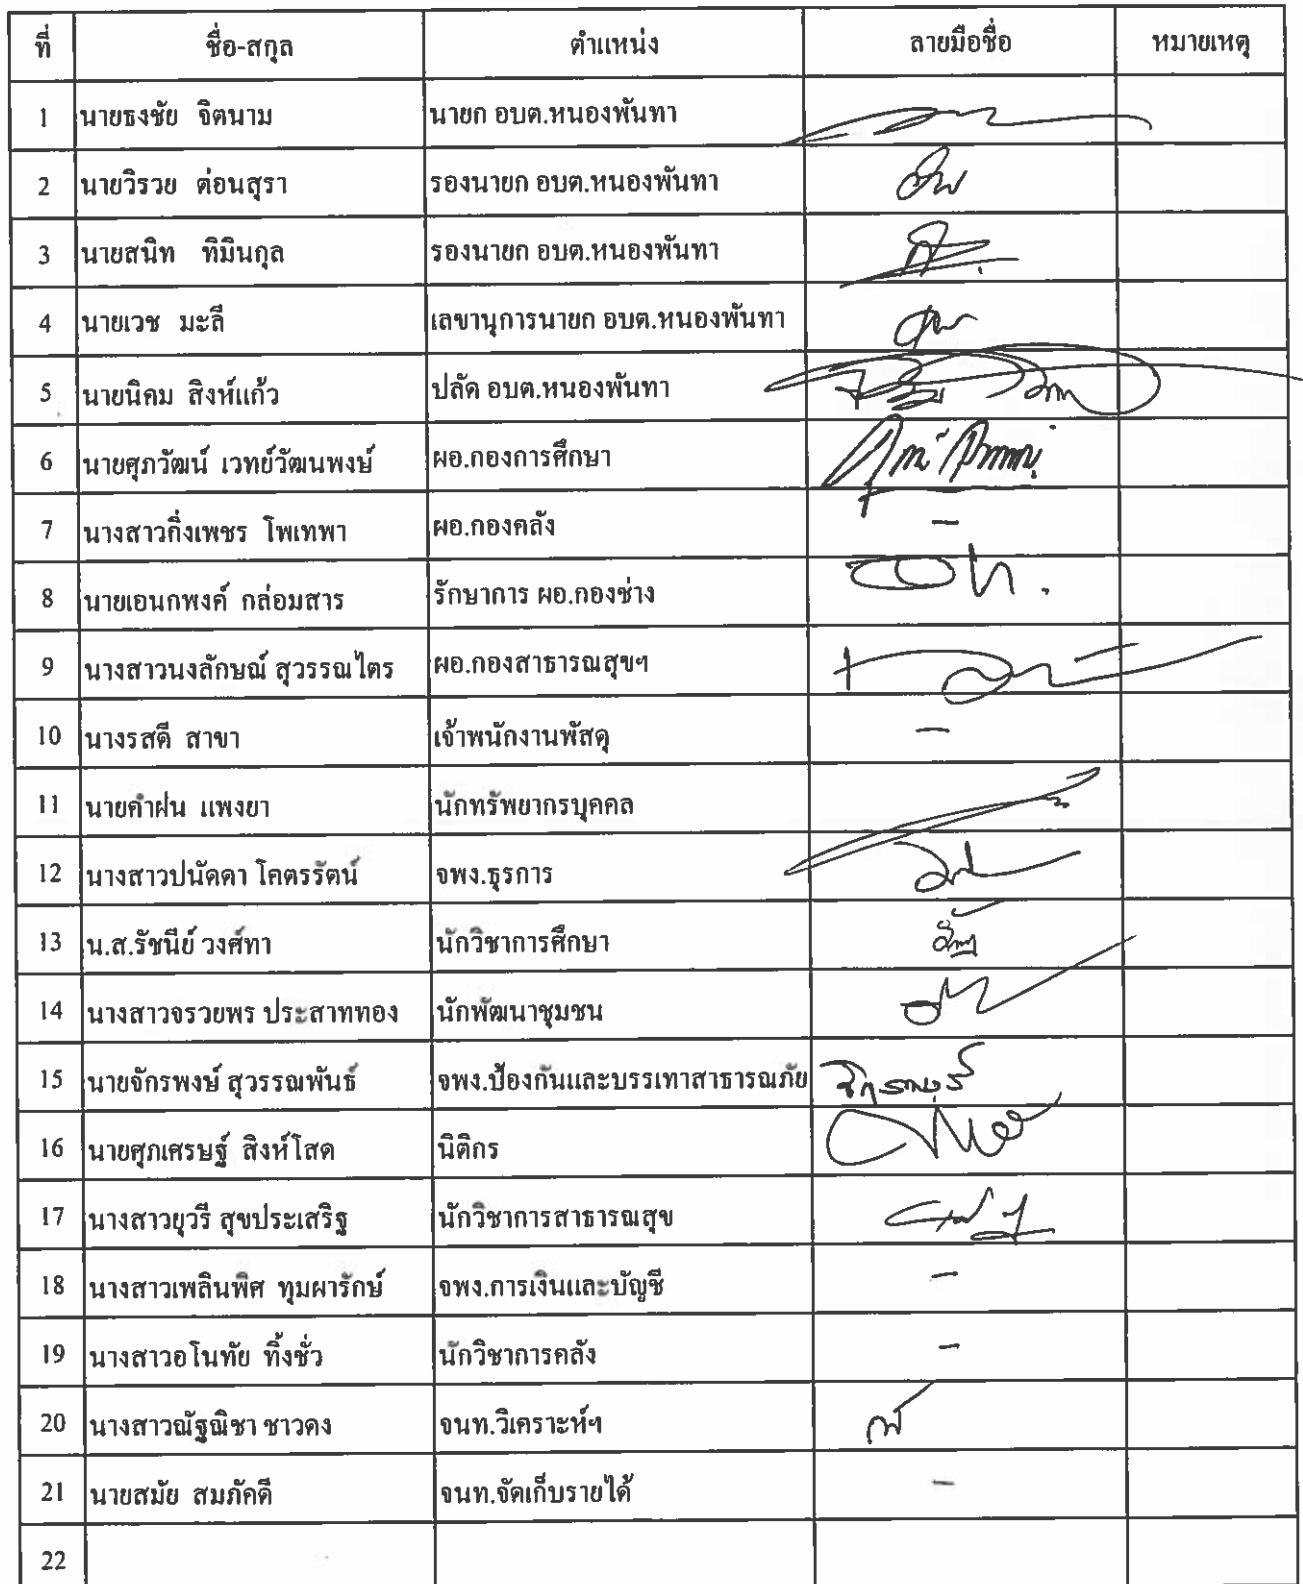 ที่ ชื่อ-สกุล ตำแหน่ง ลายมือชื่อ หมายเหตุ
1 นายธงชัย จิตนาม นายก อบต.หนองพันทา
2 นายวิรวย ต่อนสุรา รองนายก อบต.หนองพันทา
3 นายสนิท ทิมินกุล รองนายก อบต.หนองพันทา
4 นายเวช มะลี เลขานุการนายก อบต.หนองพันทา
5 นายนิคม สิงห์แก้ว ปลัด อบต.หนองพันทา
6 นายศุภวัฒน์ เวทย์วัฒนพงษ์ ผอ.กองการศึกษา
7 นางสาวกิ่งเพชร โพเทพา ผอ.กองคลัง -
8 นายเอนกพงค์ กล่อมสาร รักษาการ ผอ.กองช่าง
9 นางสาวนงลักษณ์ สุวรรณไตร ผอ.กองสาธารณสุขฯ
10 นางรสดี สาขา เจ้าพนักงานพัสดุ -
11 นายคำฝน แพงยา นักทรัพยากรบุคคล
12 นางสาวปนัดดา โคตรรัตน์ จพง.ธุรการ
13 น.ส.รัชนีย์ วงศ์ทา นักวิชาการศึกษา
14 นางสาวจรวยพร ประสาททอง นักพัฒนาชุมชน
15 นายจักรพงษ์ สุวรรณพันธ์ จพง.ป้องกันและบรรเทาสาธารณภัย
16 นายศุภเศรษฐ์ สิงห์โสด นิติกร
17 นางสาวยุวรี สุขประเสริฐ นักวิชาการสาธารณสุข
18 นางสาวเพลินพิศ ทุมผารักษ์ จพง.การเงินและบัญชี -
19 นางสาวอโนทัย ทิ้งชั่ว นักวิชาการคลัง -
20 นางสาวณัฐณิชา ชาวดง จนท.วิเคราะห์ฯ
21 นายสมัย สมภักดี จนท.จัดเก็บรายได้ -
22